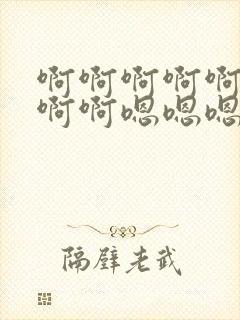 啊啊啊啊啊
啊啊嗯嗯嗯
隔壁老武